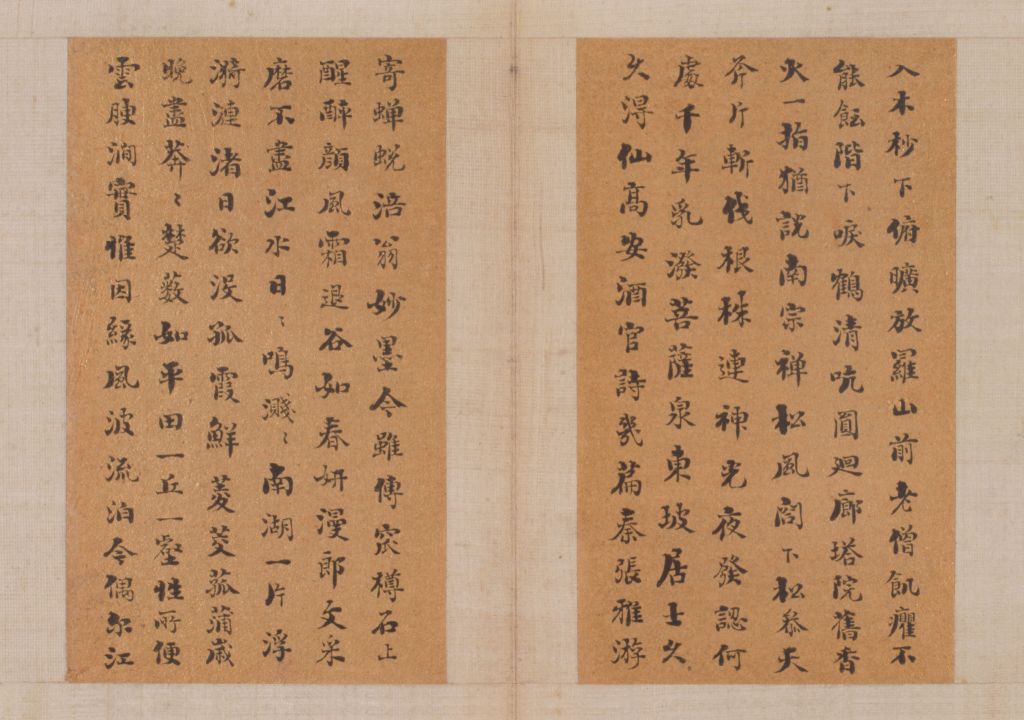 入木杪下俯曠放羅山前老僧飢癯不
能飯階下唳鶴清吭圓廻廊塔院舊香
火一指猶説南宗禅松風閣下松叅天
斧斤斬伐根株連神光夜發認何
處千年乳潑菩薩泉東坡居士久
久淂仙高安酒官詩幾篇秦張雅游
寄蟬蜕涪翁妙墨今雖傳窊樽石上
醒醉顔風霜退谷如春妍漫郎文采
磨不盡江水日〻鳴濺〻南湖一片浮
漪漣渚日欲没孤霞鮮菱茭菰蒲歲
晚盡莽〻楚藪如平田一丘一壑性所便
雲腴澗實惟因緣風波流泊今偶尔江